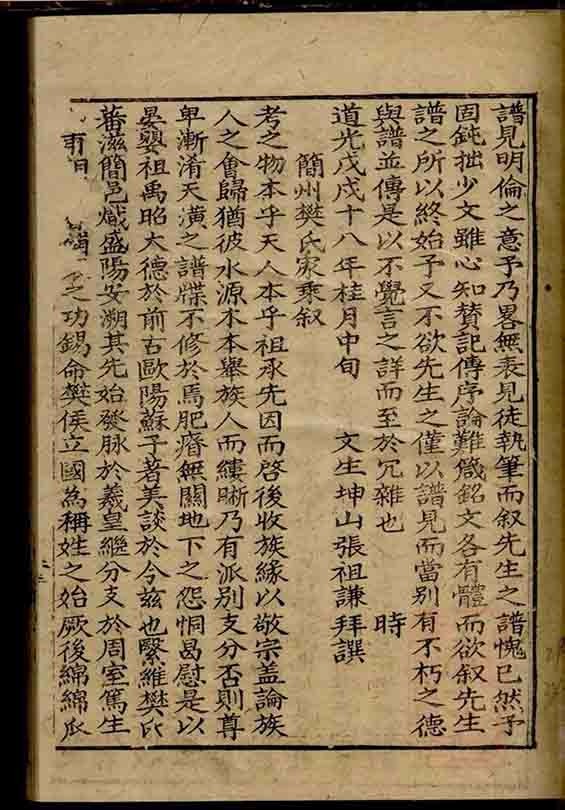 譜見明倫之意予乃畧無表見徒執筆而叙先生之譜愧已然予
固鈍拙少文雖心知賛記傳序論難箴銘文各有體而欲叙先生
譜之所以終始予又不欲先生之僅以譜見而當别有不朽之德
與譜並傳是以不覺言之詳而至於冗雜也 時
道光戊戌十八年桂月中旬 文生坤山張祖謙拜譔
簡州樊氏家乘叙
考之物本乎天人本乎祖承先因而啓後收族緣以敬宗盖論族
人之會歸猶彼水源木本舉族人而縷晰乃有派别支分否則尊
卑漸淆天潢之譜牒不修於焉肥瘠無關地下之怨恫曷慰是以
晏嬰祖禹昭大德於前古歐陽蘇子著美談於今兹也繄維樊氏
蕃滋簡邑熾盛陽安溯其先始發脉於羲皇繼分支於周室篤生
之功錫命樊侯立國為稱姓之始厥後綿綿瓜